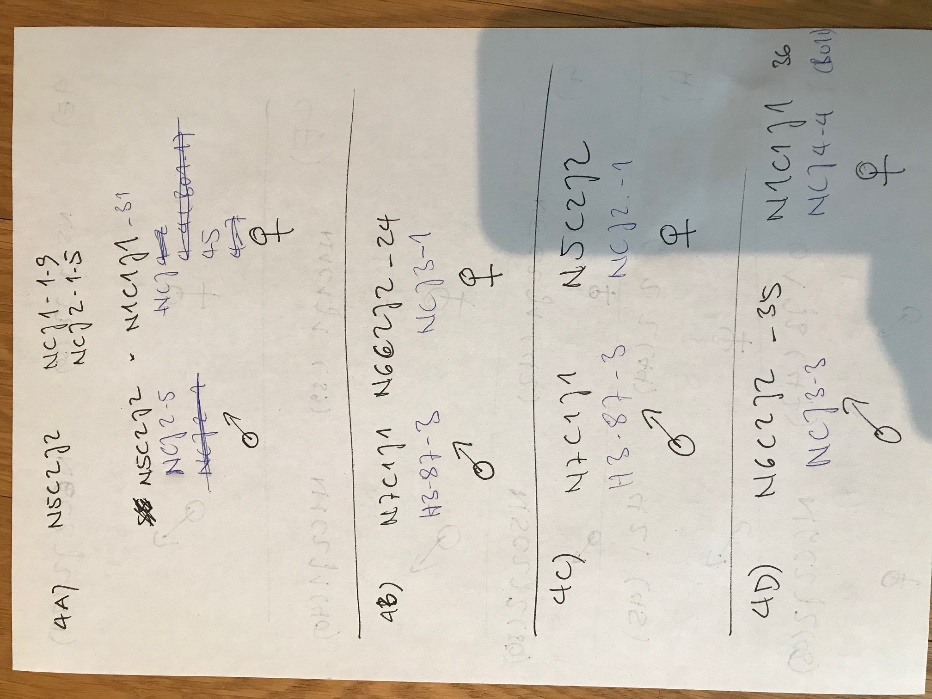 4A) N5C2J2 NCJ1-1-9
NCJ2-1-5
N5C2J2 · N1C1J1-31
NCJ2-5 NCJ
45
♂ ♀
4B) N7C1J1 N662J2-24
H3-87-3 NCJ3-1
♂ ♀
4C) N7C1J1 N5C2J2
H3-87-3 NCJ2-1
♂ ♀
4D) N6C2J2-35 N1C1J1 36
NCJ3-3 NCJ4-4
♂ ♀